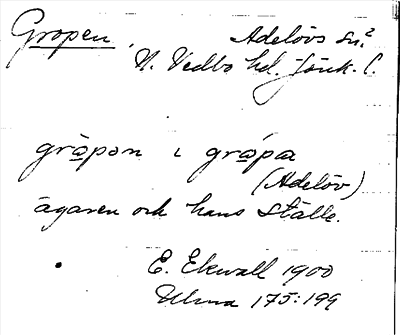 Gropen, Adelövs sn.
N. Vedbo hd. Jönk. l.
gråpən ι gråpa
(Adelöv)
ägaren och hans ställe.
E. Ekwall 1900
Ulma 175:199